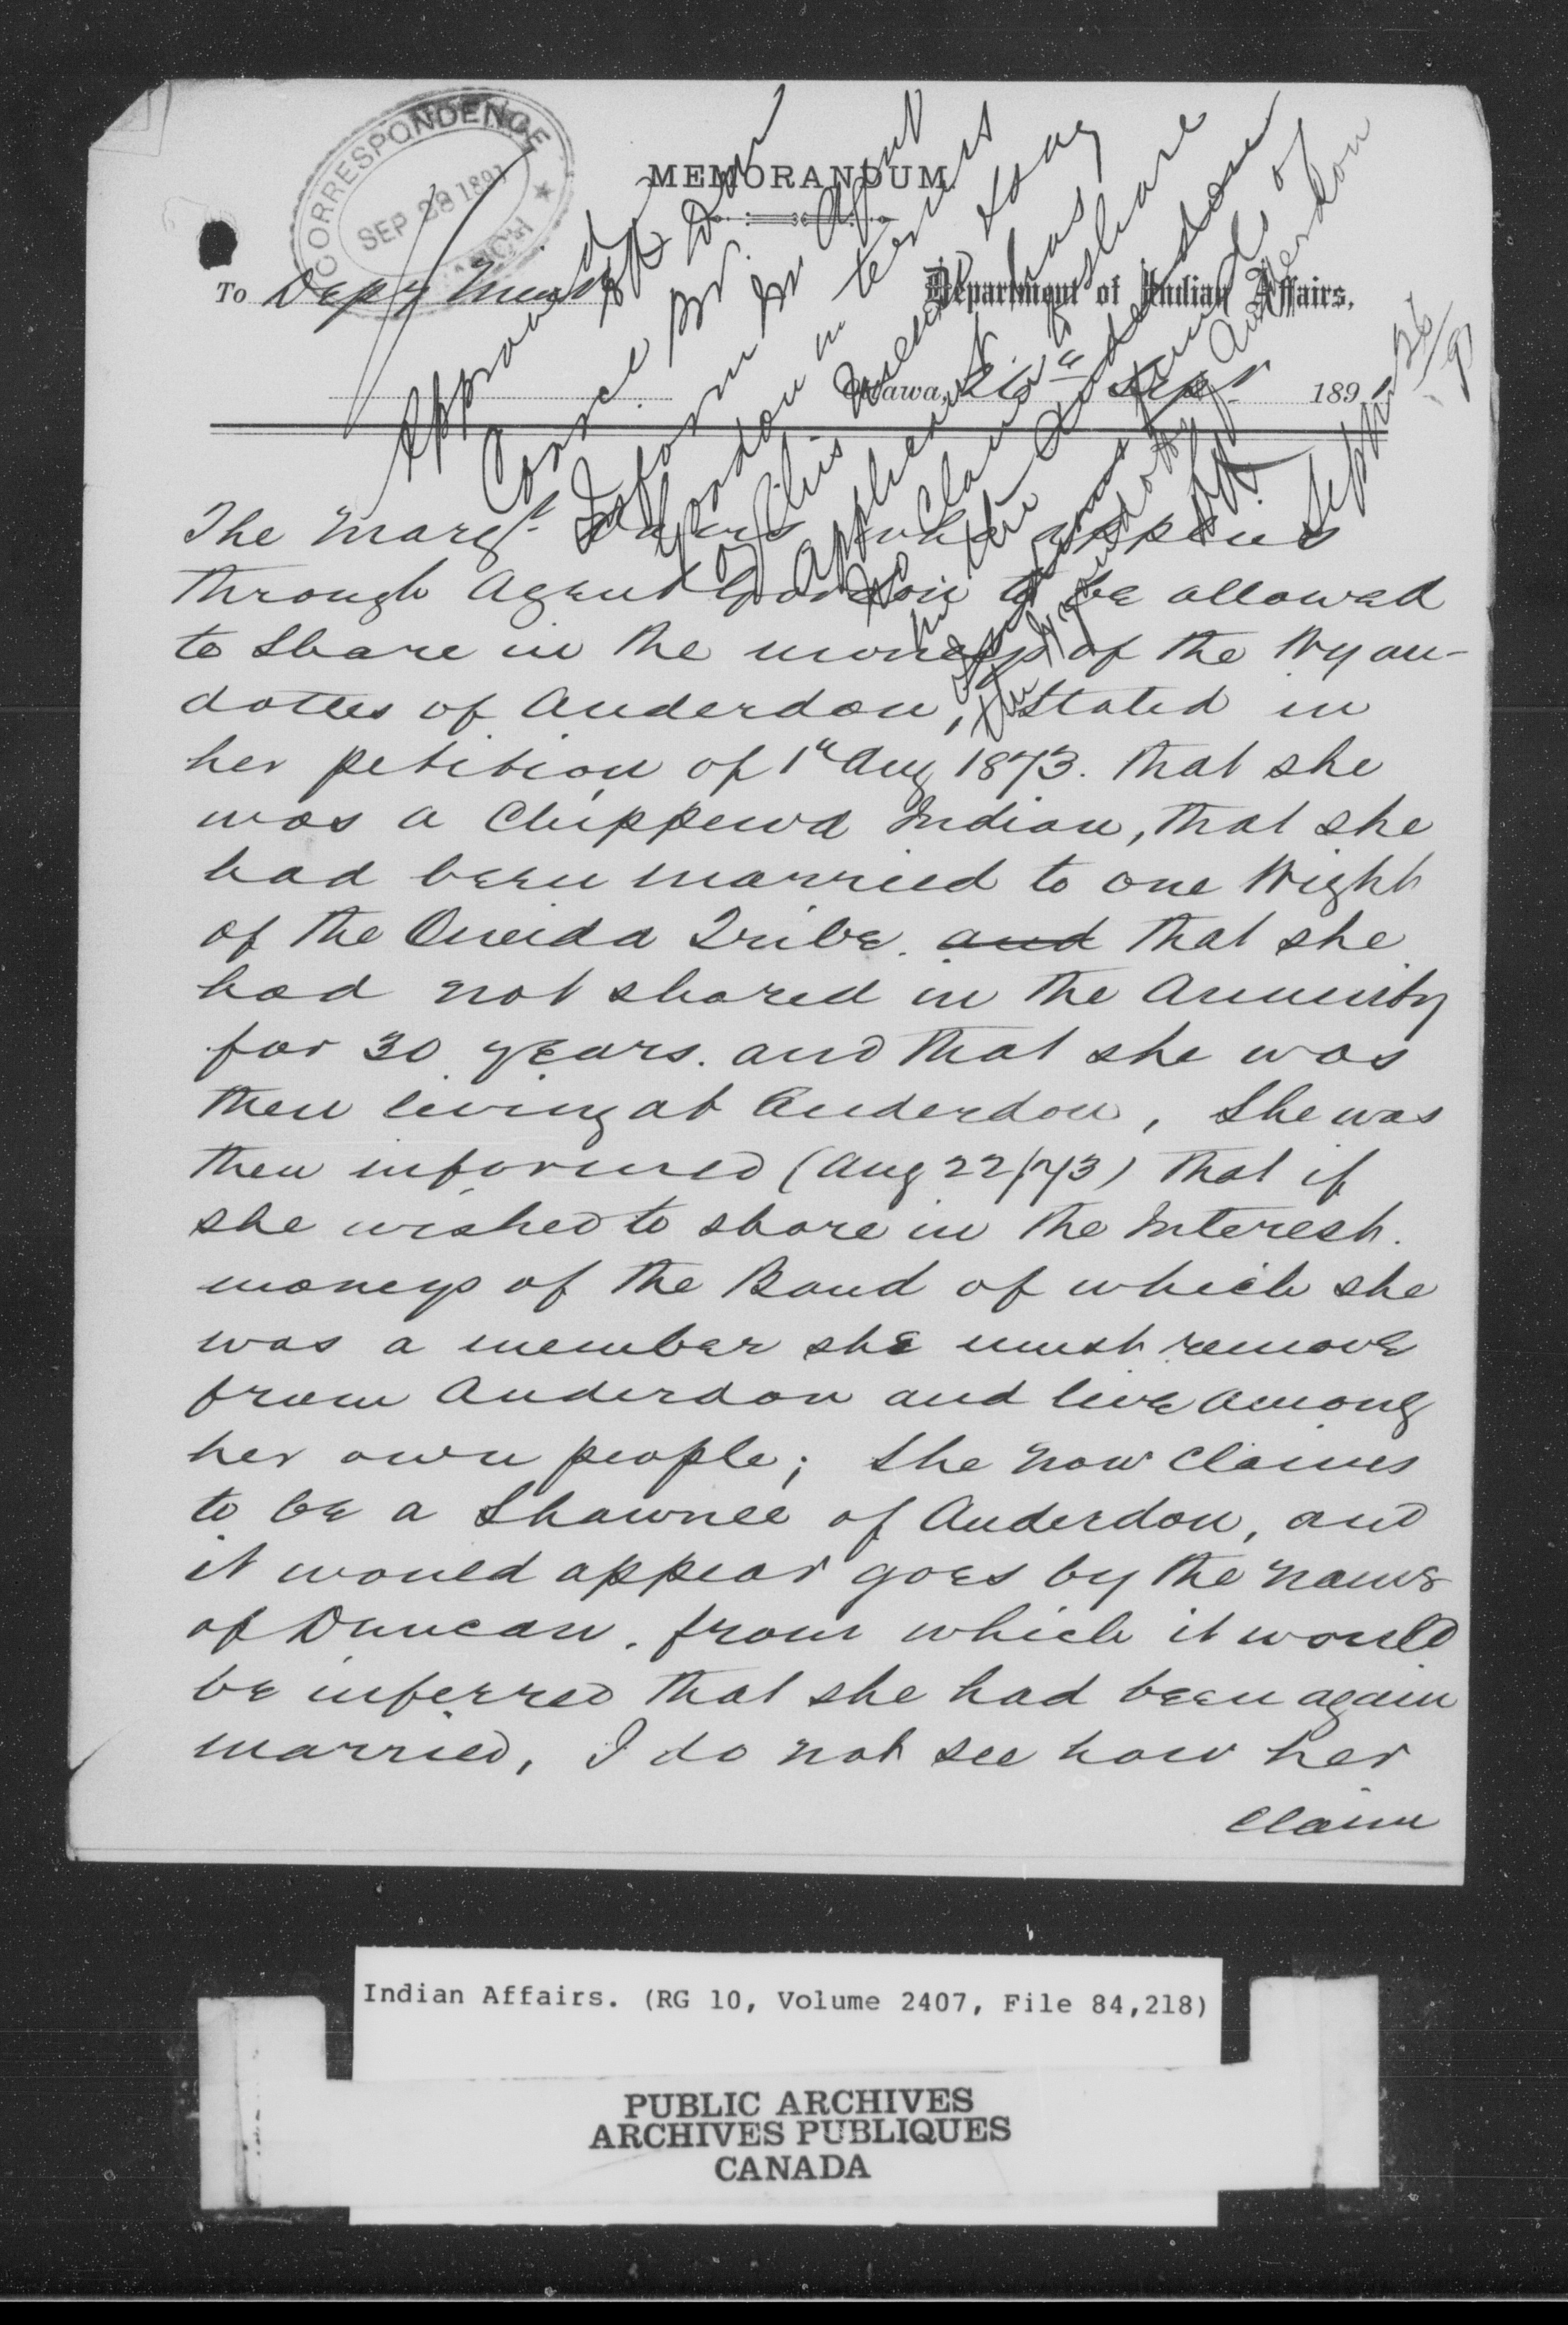 CORRESPONDENCE
SEP 28 1891
MEMORANDUM
To Depy Minr
Department of Indian Affairs,
Ottawa, 26 Sepr 1891
Approved
Corrce Br.
Inform Agent
Gordon in terms
of this
Applicant has
no claim to share
in the
funds of
the Wyandotts of Anderdon
Sept 26/91
The Margt who applies
through Agent Gordon to be allowed
to share in the moneys of the Wyan-
dottes of Anderdon, stated in
her petition of 1st Aug 1873. that she
was a Chippewa Indian, that she
had been married to one Wight
of the Oneida Tribe. and that she
had not shared in the Annuity
for 30 years. and that she was
then living at Anderdon, She was
then informed (Aug 22/73) that if
she wished to share in the Interest.
moneys of the Band of which she
was a member she must remove
from Anderdon and live among
her own people; She now claims
to be a Shawnee of Anderdon, and
it would appear goes by the name
of Duncan. from which it would
be inferred that she had been again
married, I do not see how her
claim
Indian Affairs. (RG 10, Volume 2407, File 84,218)
PUBLIC ARCHIVES
ARCHIVES PUBLIQUES
CANADA